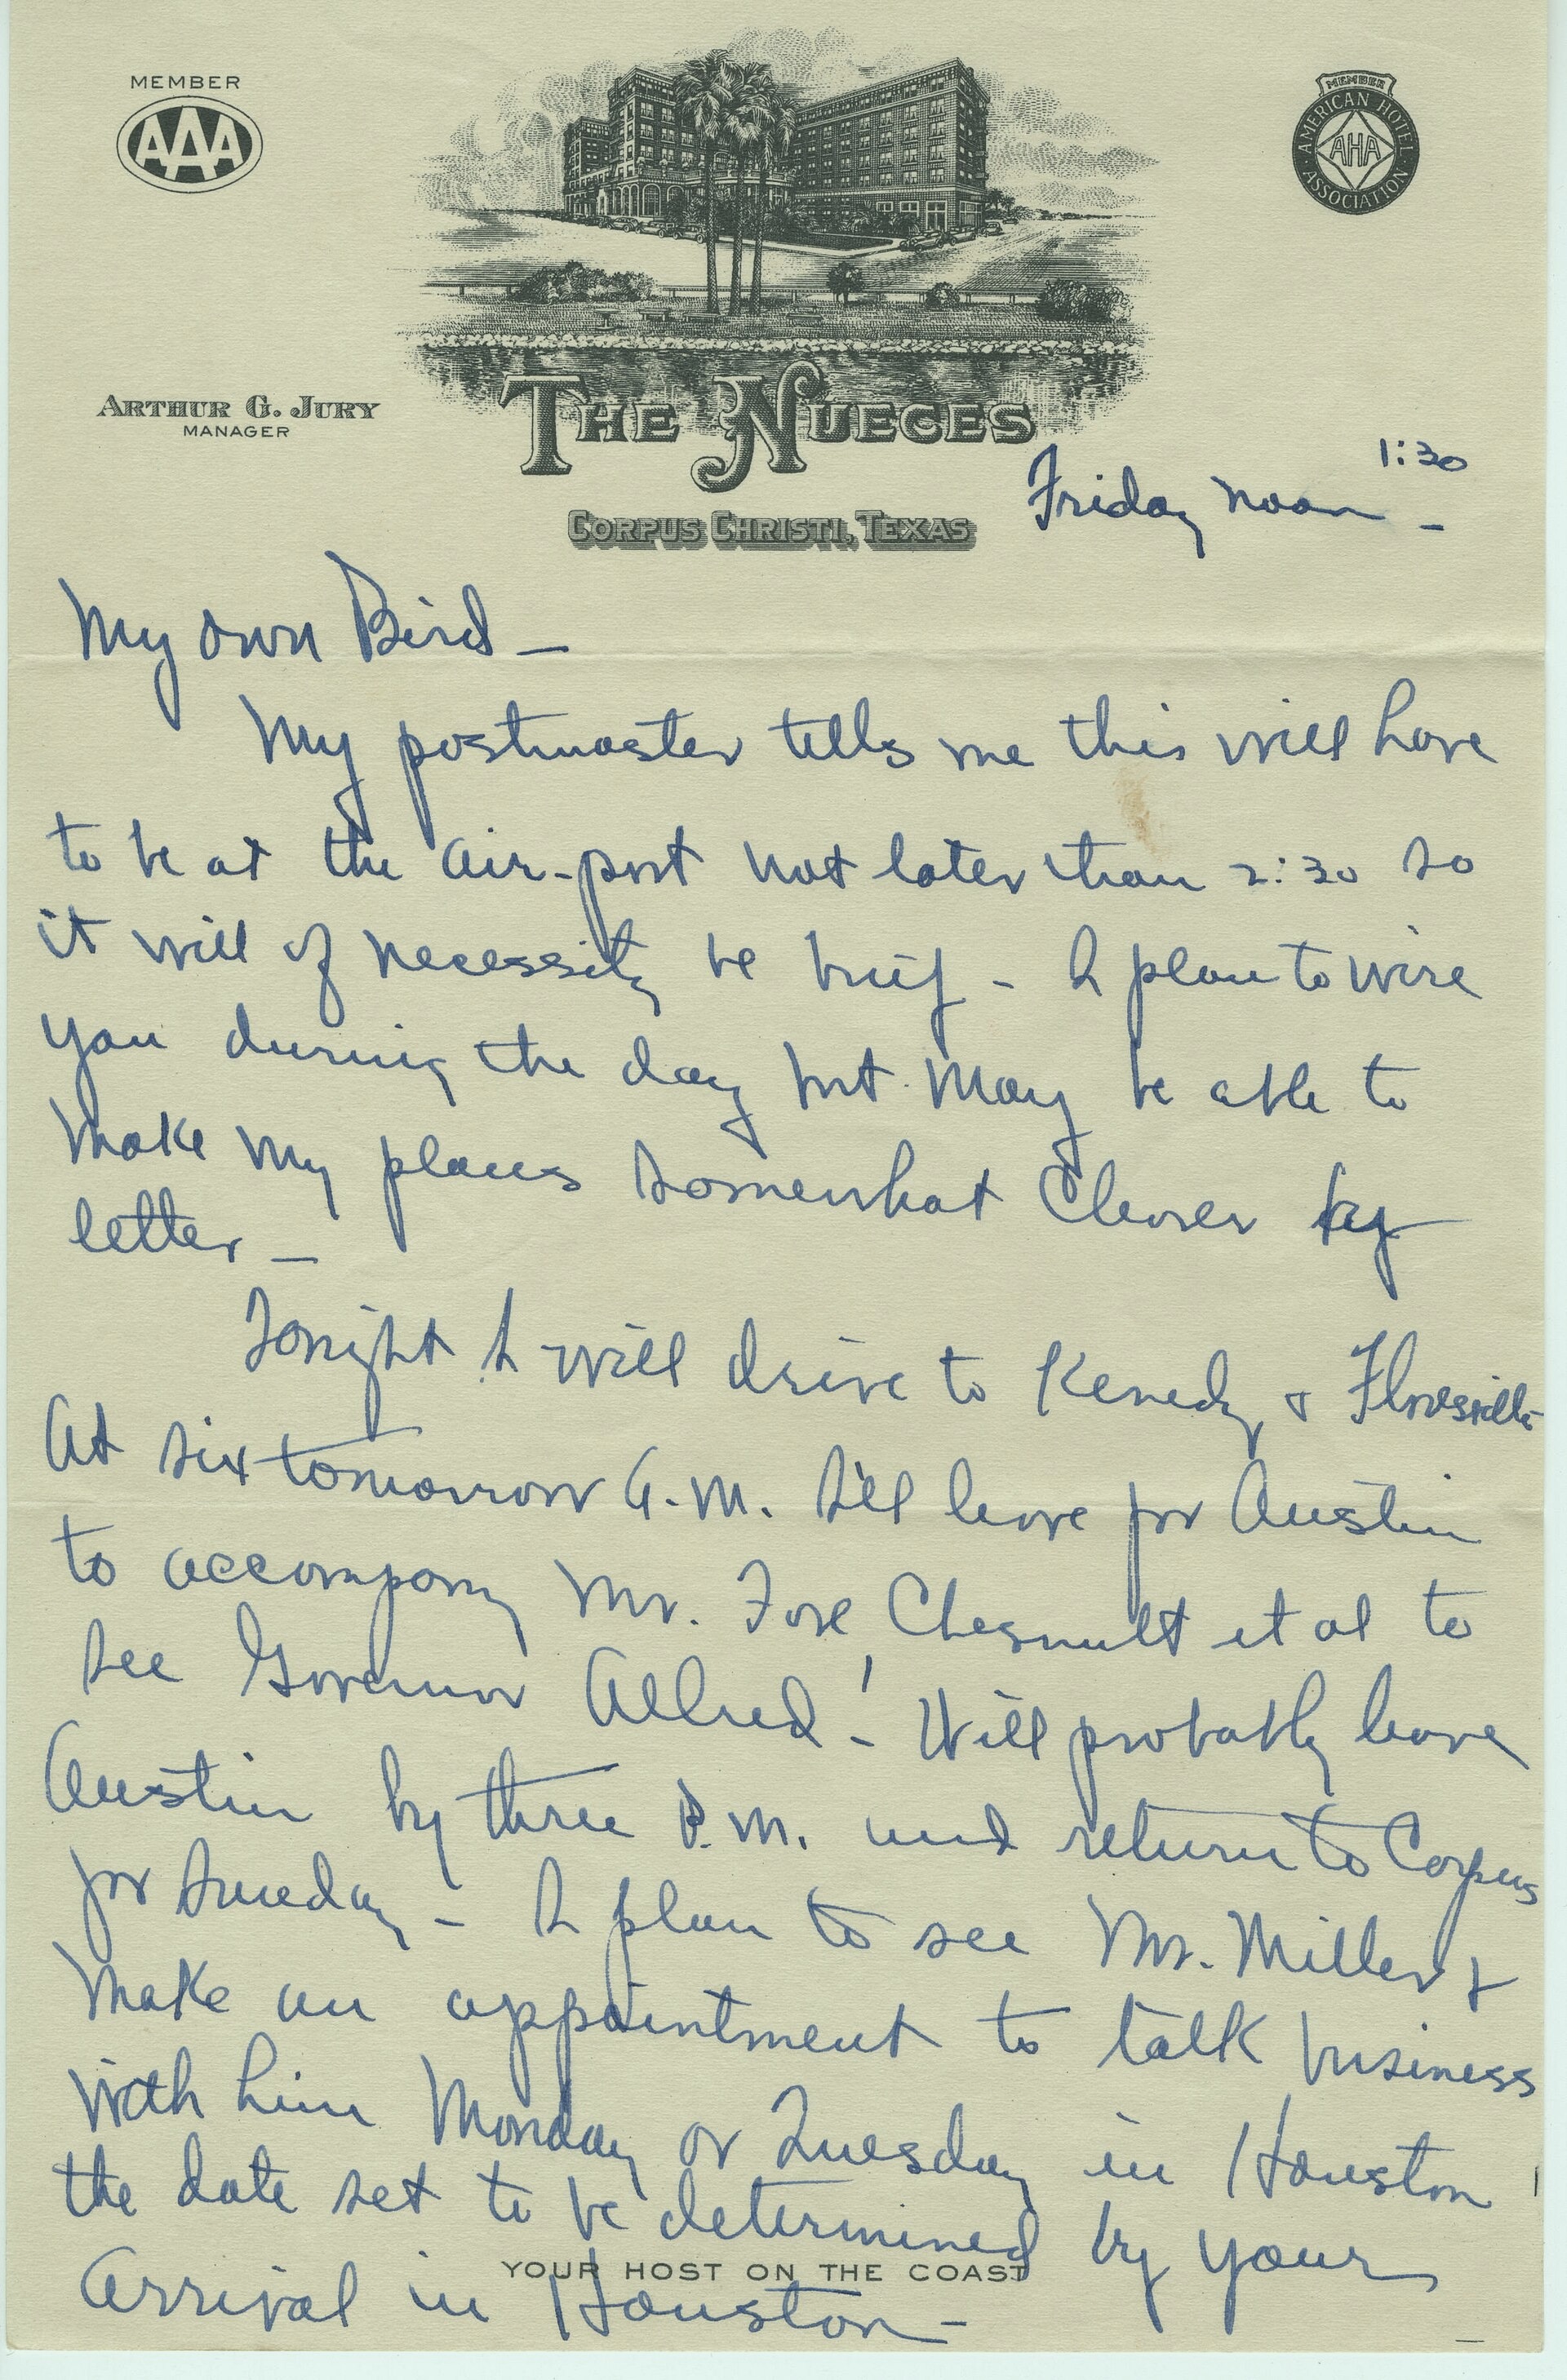 MEMBER
AAA
MEMBER
AMERICAN HOTEL ASSOCIATION
AHA
ARTHUR G. JURY
MANAGER
THE NUECES
CORPUS CHRISTI, TEXAS
1:30
Friday noon -
My own Bird -
My postmaster tells me this will have
to be at the air-port not later than 2:30 so
it will of necessity be brief - I plan to wire
you during the day but may be able to
make my plans somewhat clearer by
letter -
Tonight I will drive to Kenedy & Floresville -
At six tomorrow A.M. I'll leave for Austin
to accompany Mr. Fore, Chesnutt et al to
see Governor Allred! - Will probably leave
Austin by three P.M. and return to Corpus
for Sunday - I plan to see Mr. Miller &
make an appointment to talk business
with him Monday or Tuesday in Houston
the date set to be determined by your
arrival in Houston -
YOUR HOST ON THE COAST